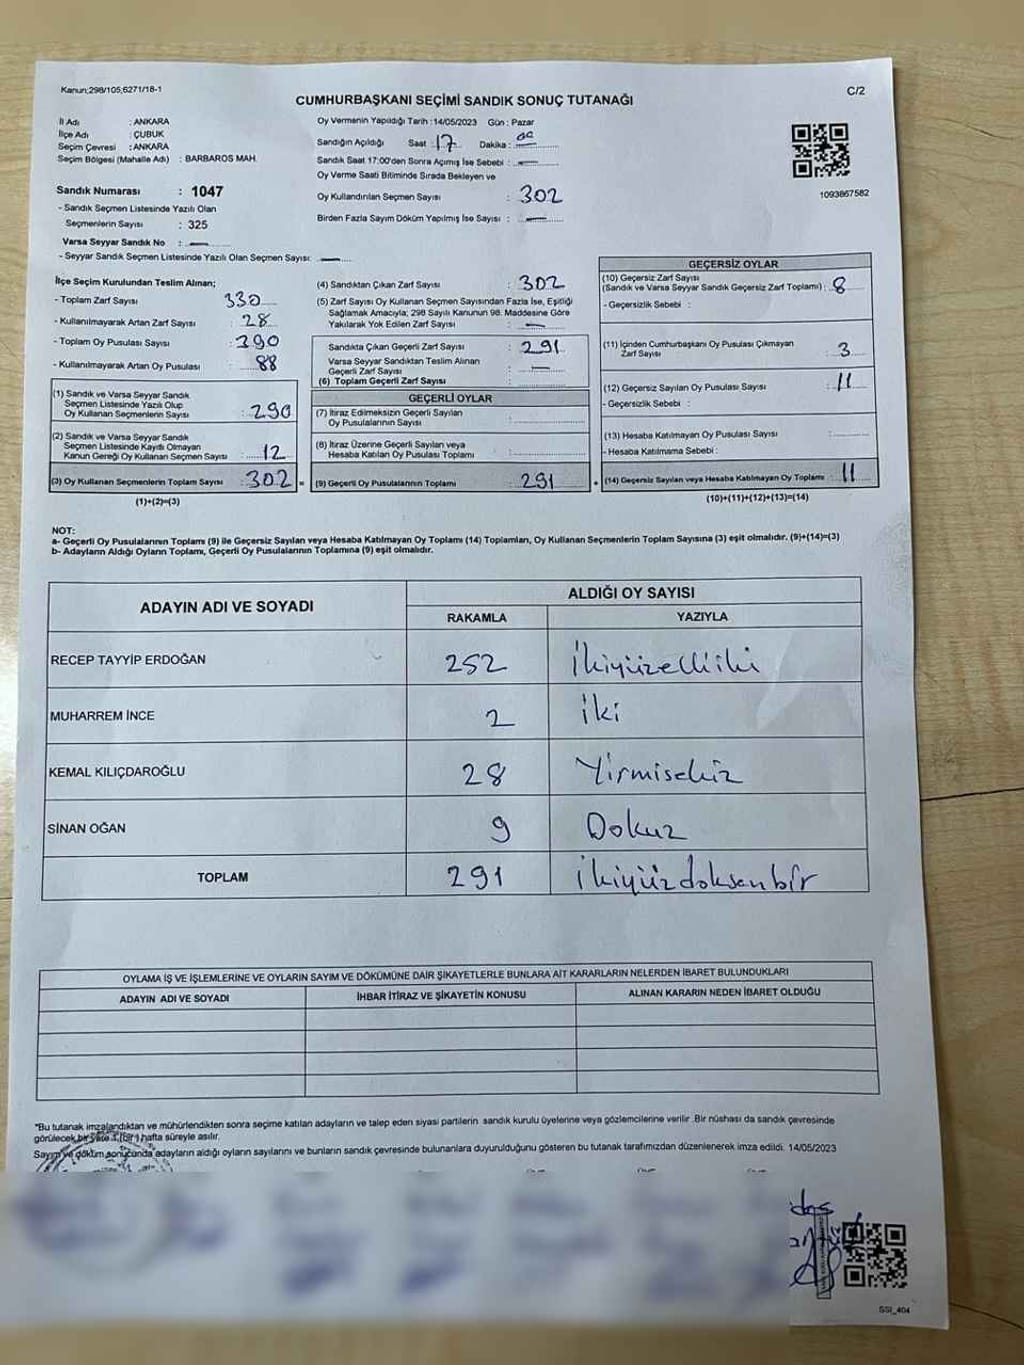 Kanun;298/105,6271/18-1
C/2
CUMHURBAŞKANI SEÇİMİ SANDIK SONUÇ TUTANAĞI
İl Adı : ANKARA
İlçe Adı : ÇUBUK
Seçim Çevresi : ANKARA
Seçim Bölgesi (Mahalle Adı) : BARBAROS MAH.
Sandık Numarası : 1047
- Sandık Seçmen Listesinde Yazılı Olan
Seçmenlerin Sayısı : 325
Varsa Seyyar Sandık No : —
- Seyyar Sandık Seçmen Listesinde Yazılı Olan Seçmen Sayısı: —
Oy Vermenin Yapıldığı Tarih : 14/05/2023 Gün : Pazar
Sandığın Açıldığı Saat : 17 Dakika : 00
Sandık Saat 17:00'den Sonra Açımış İse Sebebi : —
Oy Verme Saati Bitiminde Sırada Bekleyen ve
Oy Kullandırılan Seçmen Sayısı : 302
Birden Fazla Sayım Döküm Yapılmış İse Sayısı : —
1093867582
İlçe Seçim Kurulundan Teslim Alınan;
- Toplam Zarf Sayısı 330
- Kullanılmayarak Artan Zarf Sayısı : 28
- Toplam Oy Pusulası Sayısı : 390
- Kullanılmayarak Artan Oy Pusulası : 88
(1) Sandık ve Varsa Seyyar Sandık
Seçmen Listesinde Yazılı Olup
Oy Kullanan Seçmenlerin Sayısı : 290
(2) Sandık ve Varsa Seyyar Sandık
Seçmen Listesinde Kaydı Olmayan
Kanun Gereği Oy Kullanan Seçmen Sayısı : 12
(3) Oy Kullanan Seçmenlerin Toplam Sayısı : 302 =
(1)+(2)=(3)
(4) Sandıktan Çıkan Zarf Sayısı : 302
(5) Zarf Sayısı Oy Kullanan Seçmen Sayısından Fazla İse, Eşitliği
Sağlamak Amacıyla; 298 Sayılı Kanunun 98. Maddesine Göre
Yakılarak Yok Edilen Zarf Sayısı : —
Sandıkta Çıkan Geçerli Zarf Sayısı : 291
Varsa Seyyar Sandıktan Teslim Alınan
Geçerli Zarf Sayısı : —
(6) Toplam Geçerli Zarf Sayısı :
GEÇERLİ OYLAR
(7) İtiraz Edilmeksizin Geçerli Sayılan
Oy Pusulalarının Sayısı :
(8) İtiraz Üzerine Geçerli Sayılan veya
Hesaba Katılan Oy Pusulası Toplamı :
(9) Geçerli Oy Pusulalarının Toplamı : 291 +
GEÇERSİZ OYLAR
(10) Geçersiz Zarf Sayısı
(Sandık ve Varsa Seyyar Sandık Geçersiz Zarf Toplamı) : 8
- Geçersizlik Sebebi :
(11) İçinden Cumhurbaşkanı Oy Pusulası Çıkmayan
Zarf Sayısı : 3
(12) Geçersiz Sayılan Oy Pusulası Sayısı : 11
- Geçersizlik Sebebi :
(13) Hesaba Katılmayan Oy Pusulası Sayısı :
- Hesaba Katılmama Sebebi :
(14) Geçersiz Sayılan veya Hesaba Katılmayan Oy Toplamı : 11
(10)+(11)+(12)+(13)=(14)
NOT:
a- Geçerli Oy Pusulalarının Toplamı (9) ile Geçersiz Sayılan veya Hesaba Katılmayan Oy Toplamı (14) Toplamları, Oy Kullanan Seçmenlerin Toplam Sayısına (3) eşit olmalıdır. (9)+(14)=(3)
b- Adayların Aldığı Oyların Toplamı, Geçerli Oy Pusulalarının Toplamına (9) eşit olmalıdır.
ADAYIN ADI VE SOYADI ALDIĞI OY SAYISI
RAKAMLA YAZIYLA
RECEP TAYYİP ERDOĞAN 252 İkiyüzelliiki
MUHARREM İNCE 2 İki
KEMAL KILIÇDAROĞLU 28 Yirmisekiz
SİNAN OĞAN 9 Dokuz
TOPLAM 291 İkiyüzdoksanbir
OYLAMA İŞ VE İŞLEMLERİNE VE OYLARIN SAYIM VE DÖKÜMÜNE DAİR ŞİKAYETLERLE BUNLARA AİT KARARLARIN NELERDEN İBARET BULUNDUKLARI
ADAYIN ADI VE SOYADI İHBAR İTİRAZ VE ŞİKAYETİN KONUSU ALINAN KARARIN NEDEN İBARET OLDUĞU
*Bu tutanak imzalandıktan ve mühürlendikten sonra seçime katılan adayların ve talep eden siyasi partilerin sandık kurulu üyelerine veya gözlemcilerine verilir .Bir nüshası da sandık çevresinde
görülecek bir yere 1 (bir) hafta süreyle asılır.
Sayım ve döküm sonucunda adayların aldığı oyların sayılarını ve bunların sandık çevresinde bulunanlara duyurulduğunu gösteren bu tutanak tarafımızdan düzenlenerek imza edildi. 14/05/2023
SSI_404